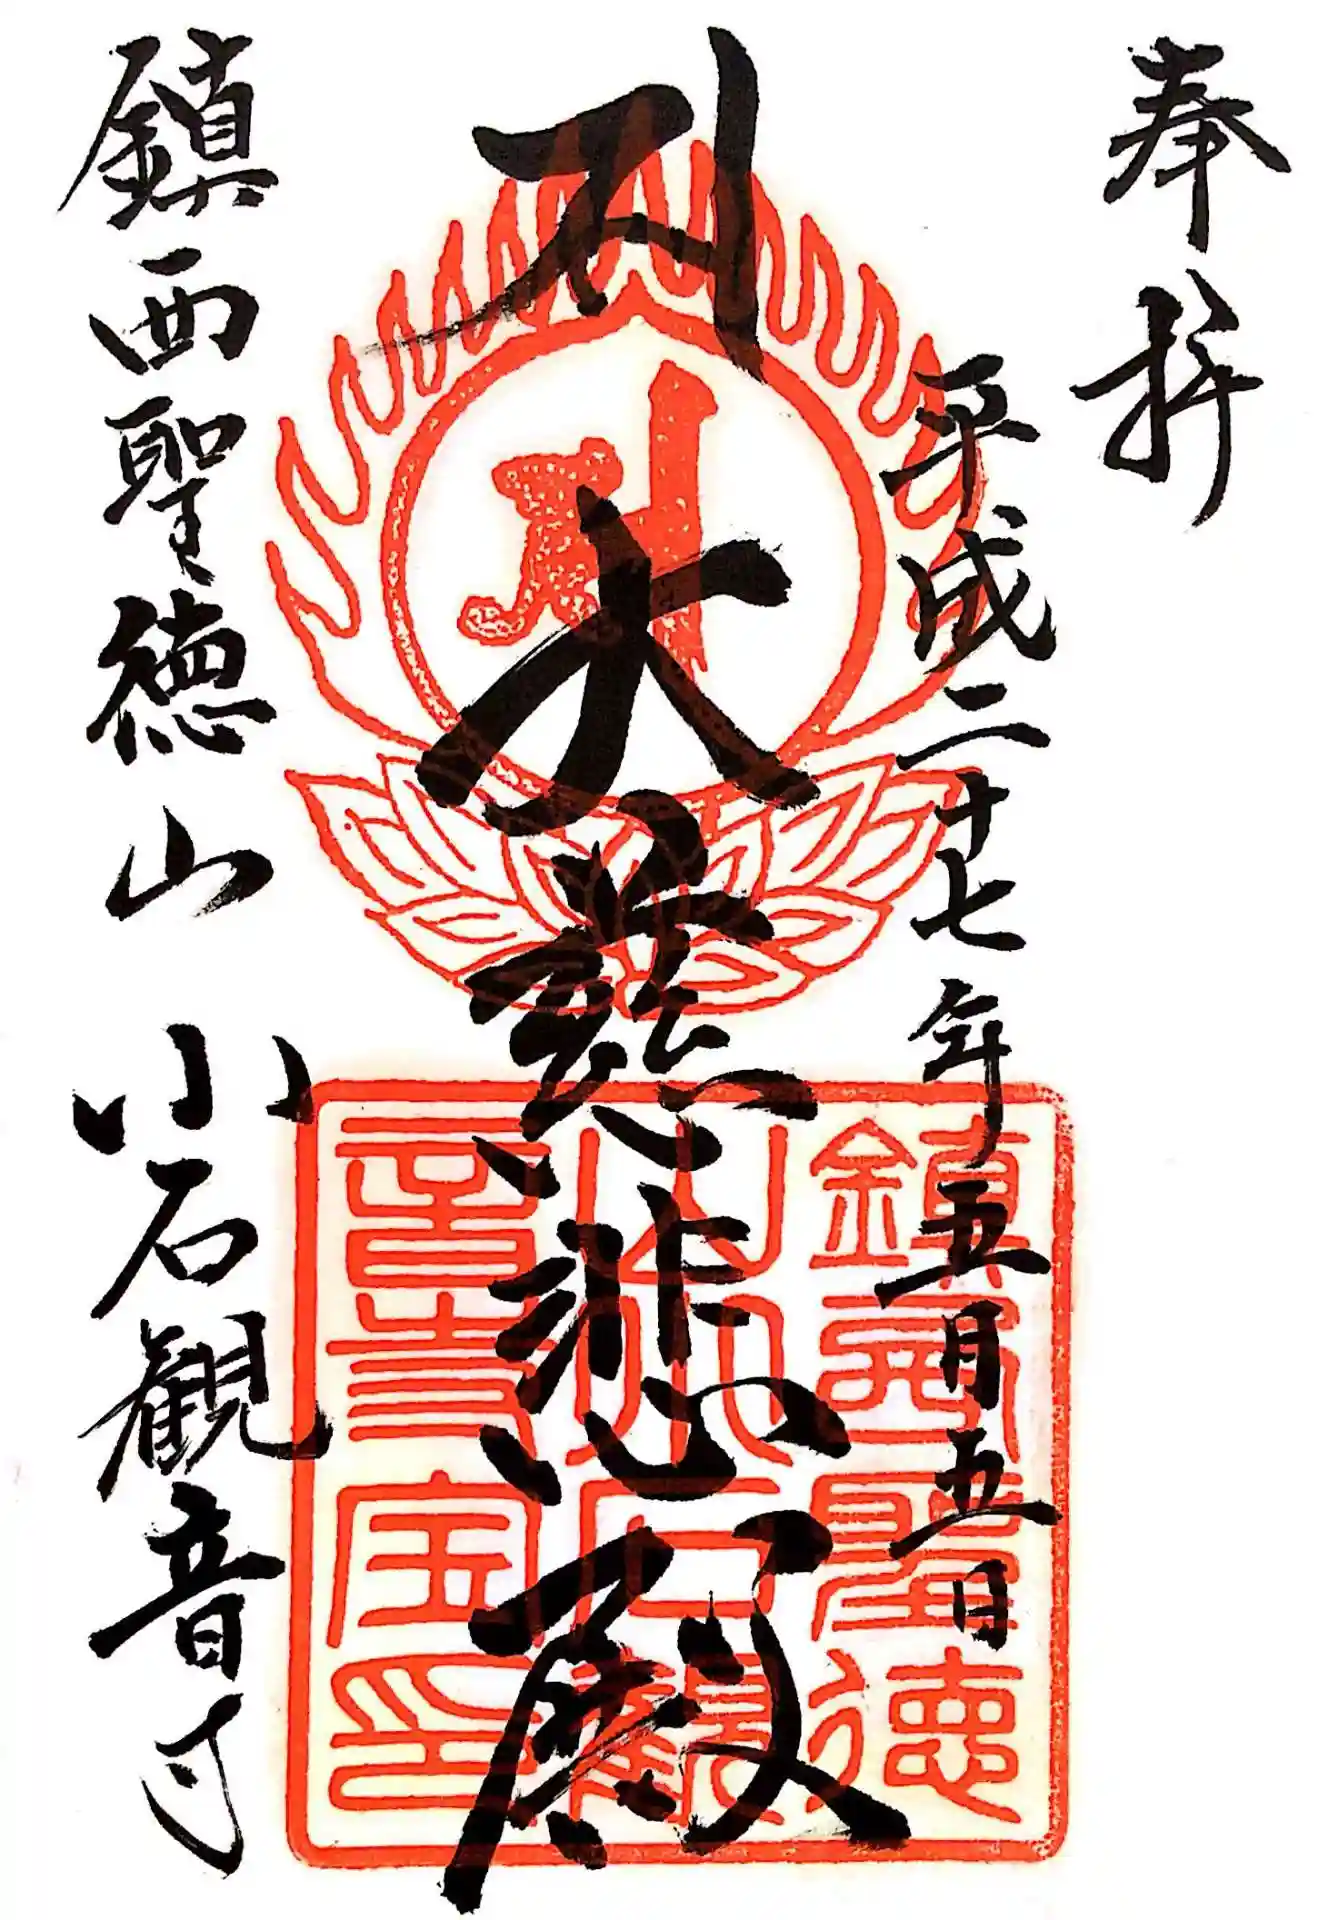 奉拝
平成二十七年五月五日
大慈悲殿
鎮西聖徳山 小石観音寺
鎮西聖徳
山小石観
音寺宝印